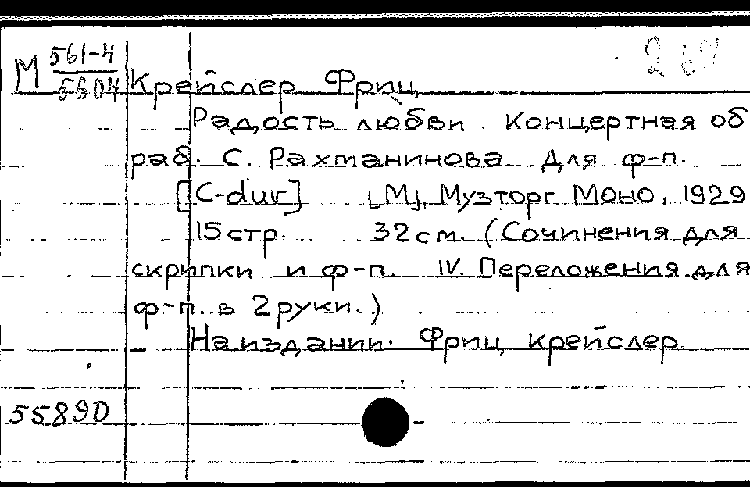 М 561-4
5604 Крейслер Фриц
Радость любви. Концертная об
раб. С. Рахманинова. Для ф-п.
[C-dur] [М], Музторг Моно, 1929
15 стр. 32 см. (Сочинения для
скрипки и ф-п. IV. Переложения для
ф-п. в 2 руки.)
На издании: Фриц Крейслер.
55890